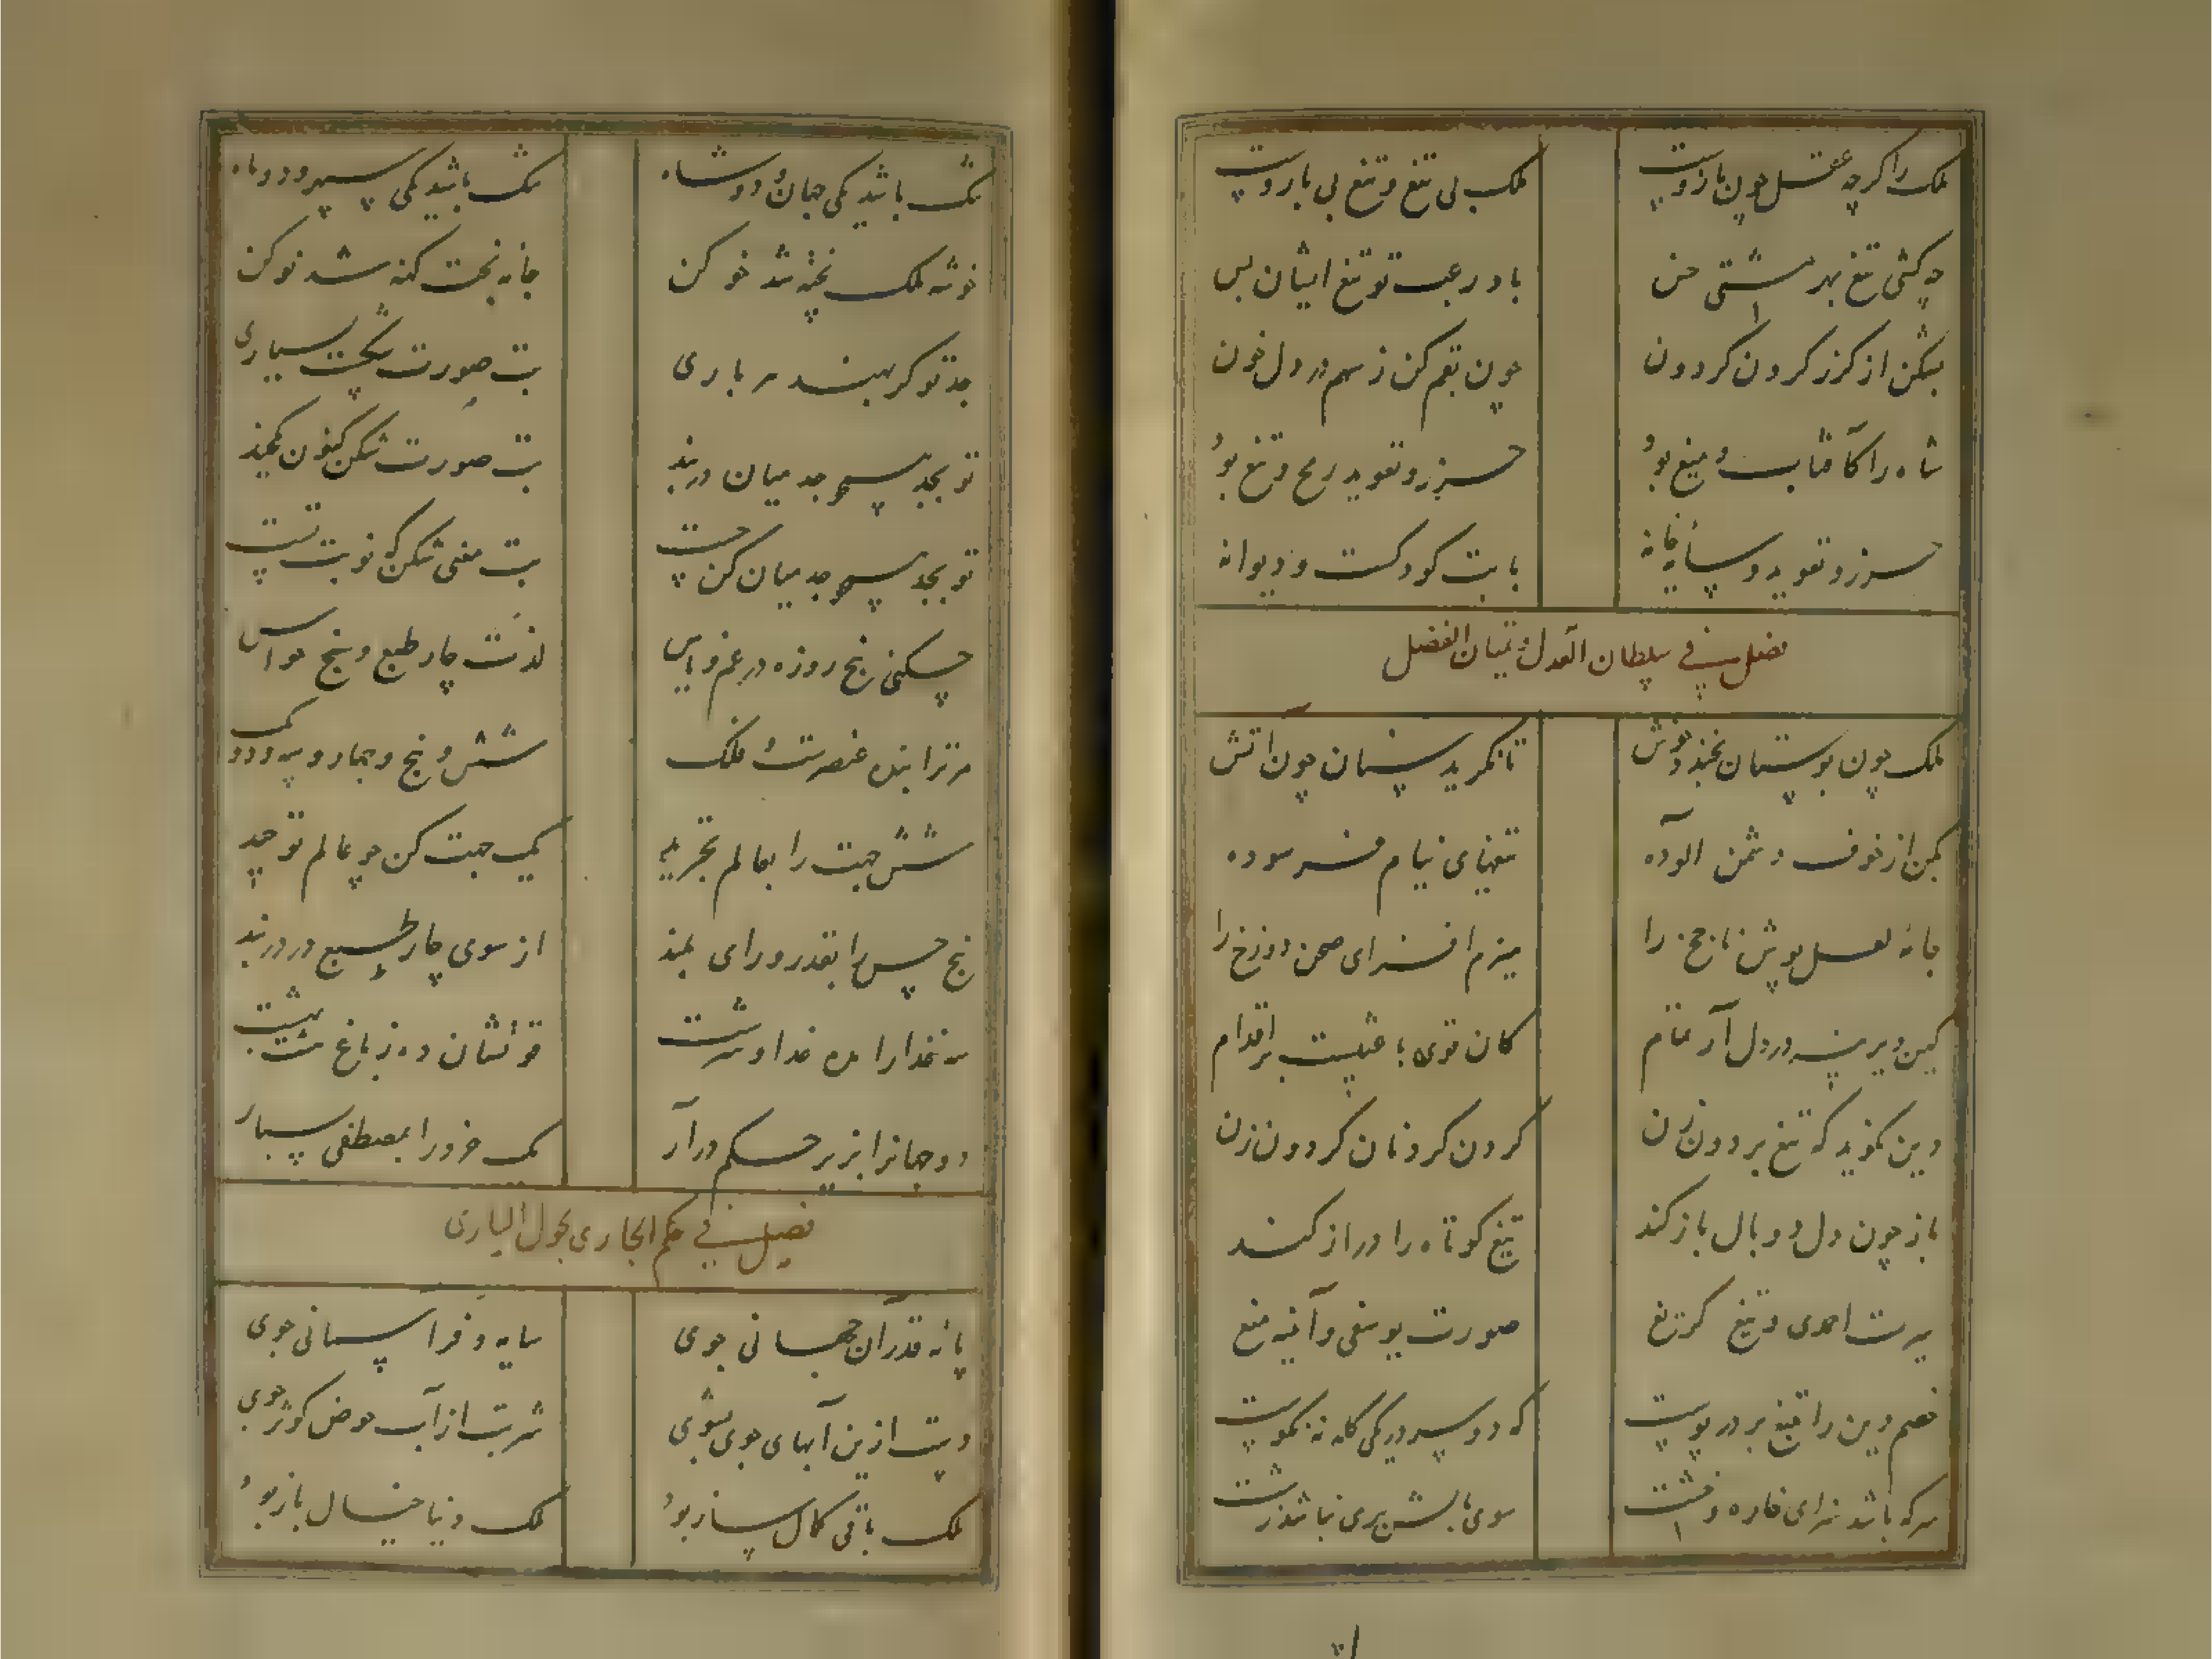 ملک را گرچه عقل چون بازوست
ملک بی تیغ و تیغ بی بازوست
چه کشی تیغ بهر مشتی خس
باد رعب تو تیغ ایشان بس
بشکن از گرز گردن گردون
چون بقم کن ز سهم در دل خون
شاه را کآفتاب و میغ بود
حرز و تعوید رمح و تیغ بود
حرز و تعوید و سایه خانه
بابت کودکست و دیوانه
فصل فی سلطان العدل و تبیان الفضل
ملک چون بوستان نخندد خوش
تا نگرید سنان چون آتش
کین از خوف دشمن آلوده
تیغهای نیام فرسوده
جامه لعل پوش ناچخ را
هیزم افزای صحن دوزخ را
کین دیرینه در دل آر مقام
کان قوی باعثیست بر اقدام
دین نگوید که تیغ بر دون زن
گردن گردنان گردون زن
باز چون دل دو بال باز کند
تیغ کوتاه را دراز کند
سیرت احمدی و تیغ گزیغ
صورت یوسفی و آینه میغ
خصم دین را بتیغ بر در پوست
که دو سر در یکی کله نه نکوست
سر که باشد سزای خاره و خشت
سوی بالش بری نباشد زشت
تنگ باشد یکی جهان و دو شاه
تنگ باشد یکی سپهر و دو ماه
خوشه ملک پخته شد خو کن
جامه بخت کهنه شد نو کن
جد تو گر بهند هر باری
بت صورت شکست بسیاری
تو بجد همچو جد میان دربند
بت صورت شکن کنون یکچند
تو بجد همچو جد میان کن چست
بت معنی شکن که نوبت تست
چکنی پنج روزه در غم و یاس
لذت چار طبع و پنج حواس
مر ترا بنده عنصرست و فلک
شش و پنج و چهار و سه و دو و یک
شش جهت را بعالم تجرید
یک جهت کن چو عالم توحید
پنج حس را بقدر و رای بلند
از سوی چار طبع در دربند
سه غذا را بده غذا و سرشت
قوتشان ده ز باغ هشت بهشت
دو جهانرا بزیر حکم درآر
یک خرد را بمصطفی بسپار
فصل فی حکم الجاری بحول الباری
پایه قدر آن جهانی جوی
سایه و فر آسمانی جوی
دست ازین آبهای جوی بشوی
شربت از آب حوض کوثر جوی
ملک باقی کمال ساز بود
ملک دنیا خیال باز بود